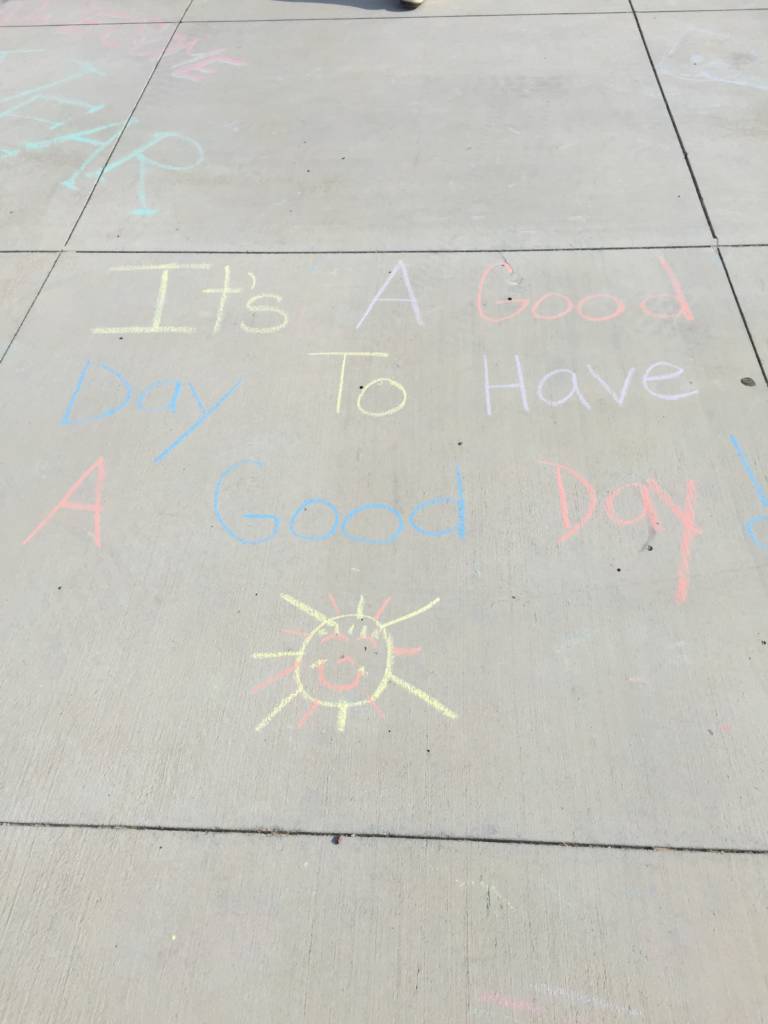 It's A Good
Day To Have
A Good Day!